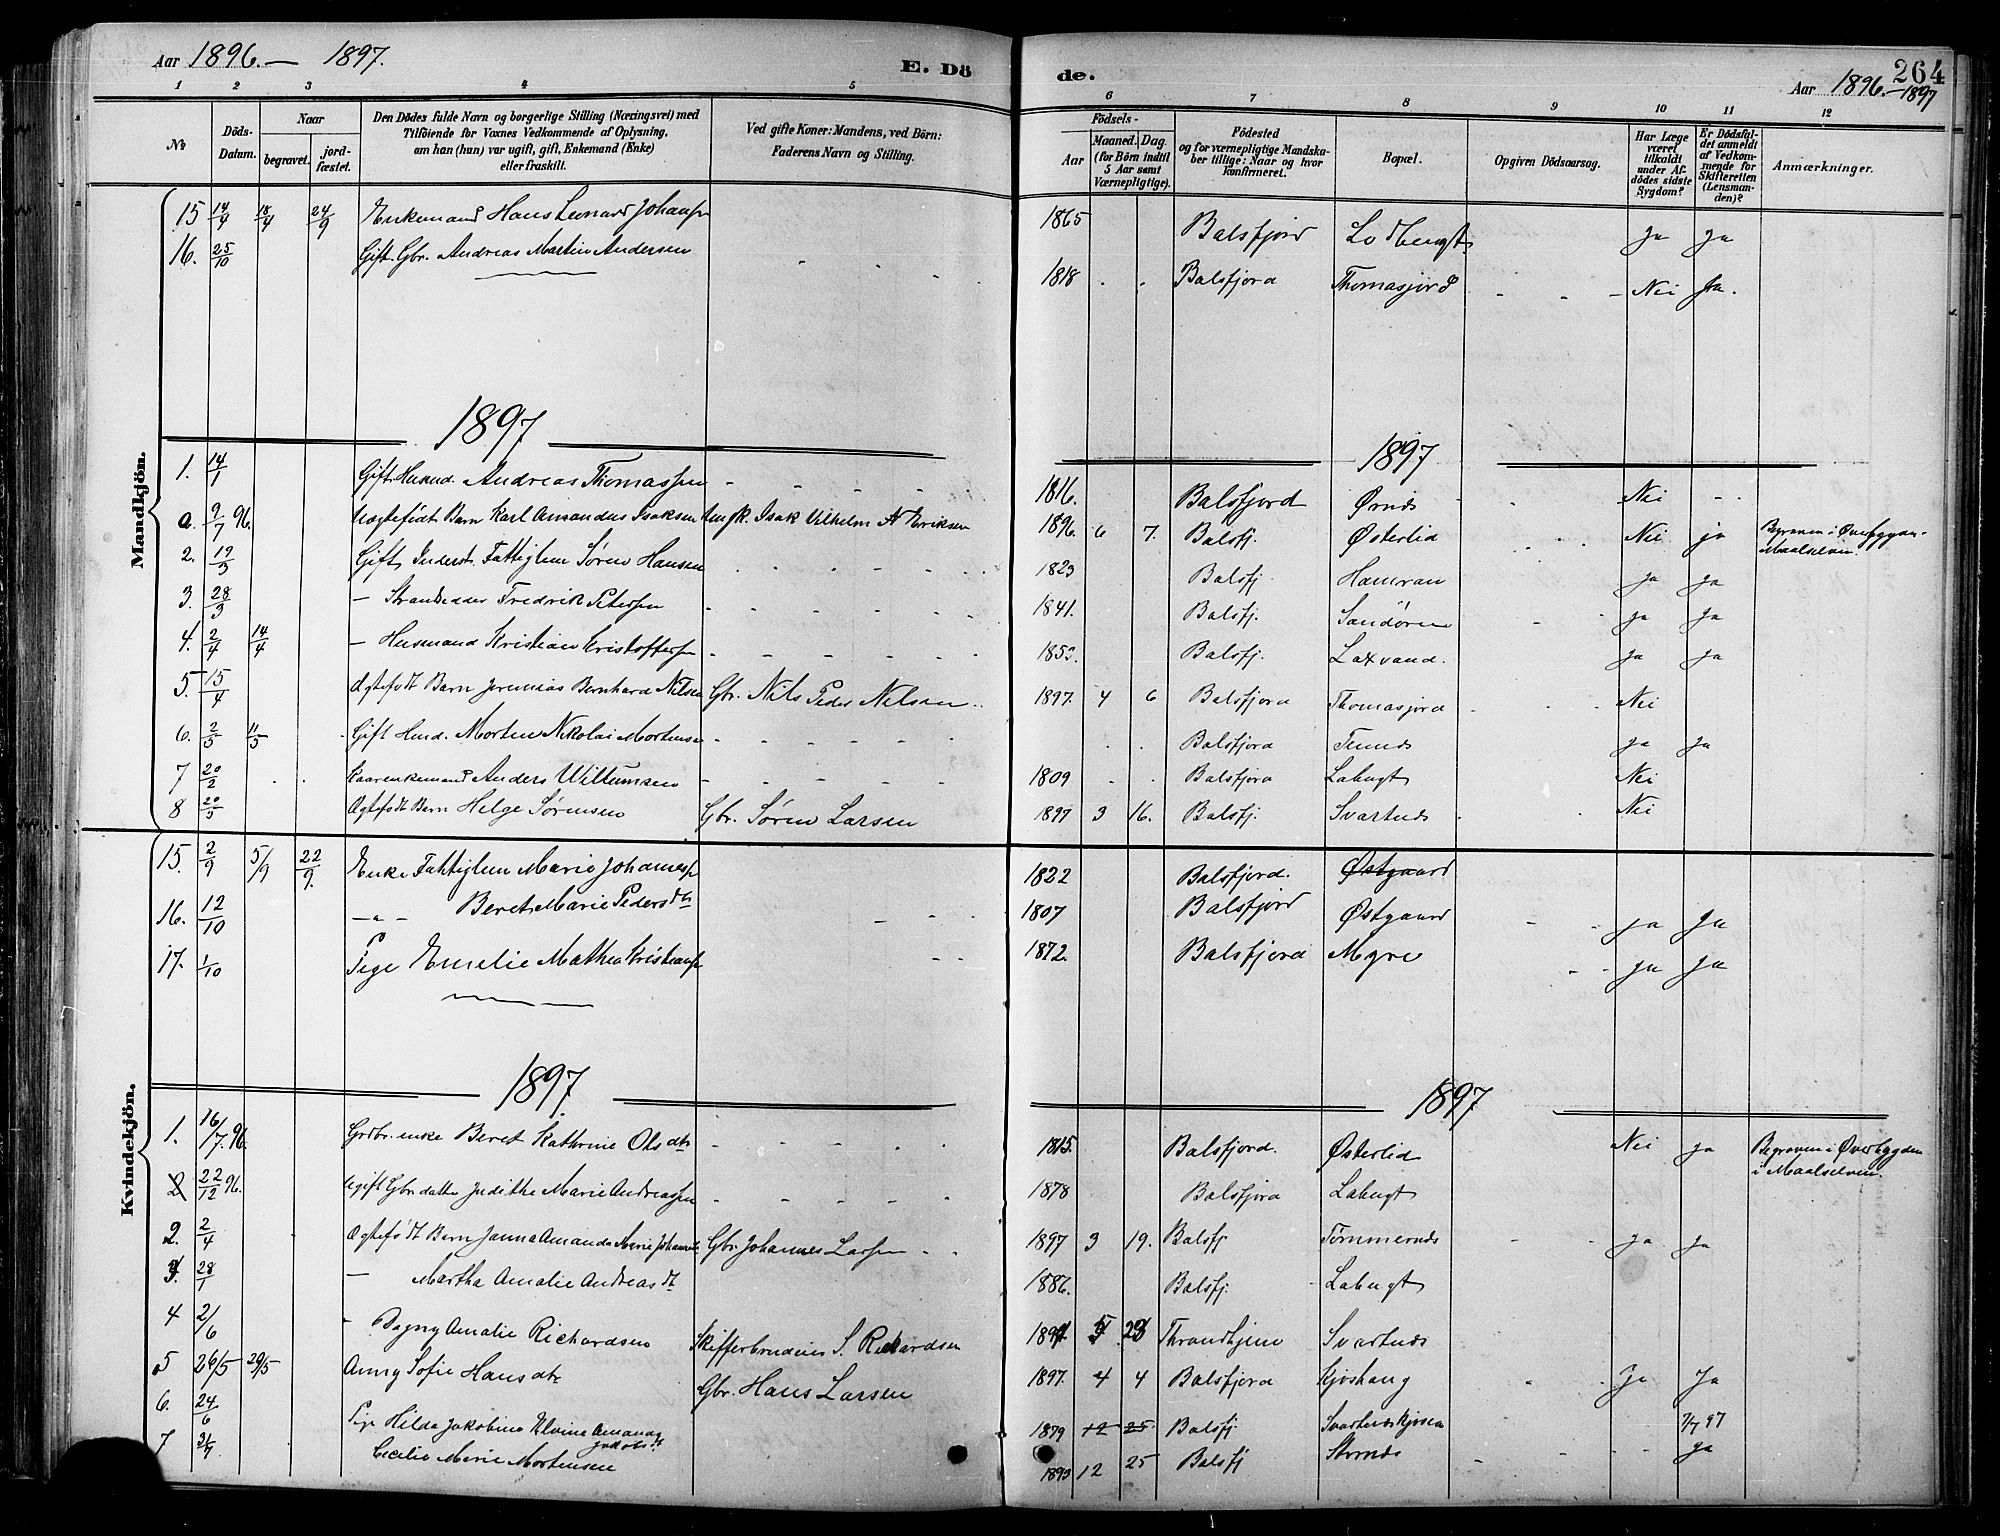 Aar 1896. — 1897.
E. Dö
de.
Aar 1896.—1897
264
1 2 3 4 5
6 7 8 9 10 11 12
№
Döds-
Datum.
Naar
begravet.
jord-
fæstet.
Den Dödes fulde Navn og borgerlige Stilling (Næringsvei) med
Tilföiende for Voxnes Vedkommende af Oplysning,
om han (hun) var ugift, gift, Enkemand (Enke)
eller fraskilt.
Ved gifte Koner: Mandens, ved Börn:
Faderens Navn og Stilling.
Födsels-
Aar
Maaned. Dag.
(for Börn indtil
5 Aar samt
Værnepligtige).
Födested
og for værnepligtige Mandska-
ber tillige: Naar og hvor
konfirmeret.
Bopæl.
Opgiven Dödsaarsag.
Har Læge
været
tilkaldt
under Af-
dödes sidste
Sygdom?
Er Dödsfal-
det anmeldt
af Vedkom-
mende for
Skifteretten
(Lensman-
den)?
Anmærkninger.
Mandkjön.
15 14/4 18/4 24/9 Enkemand Hans Leonard Johans 1865 Balsfjord ja ja
16. 25/10 Gift. Gbr. Andreas Martin Andersen 1818 Balsfjord Thomasjord Nei Ja.
1897
1897
1. 14/1 Gift. Husmd. Andreas Thomassen 1816. Balsfjord Ørnds Nei
a. 9/7 96. Uægtefødt Barn Karl Amandus Isaksen Ungk. Isak Vilhelm A Eriksen 1896. 6 7. Balsfj. Østerlid Nei ja Begraven i Øverbygden
Maalselven.
2. 19/3 Gift Inderst. Fattiglem Søren Hansen 1823 Balsfj. Hamran ja ja
3. 28/3 — Strandsidder Fredrik Petersen 1841. Balsfj. Sandøren ja ja
4. 2/4 14/4 — Husmand Kristian Kristoffersen Balsfj. Laxvand. ja ja
5. 15/4 Ægtefødt Barn Jeremias Bernhard Nilsen Gbr. Nils Peder Nilsen 1897. 4 6 Balsfjord Thomasjord Nei
6. 2/5 11/5 Gift Husmd. Morten Nikolai Mortensen Balsfjord Tennes ja ja
7 20/2 Kaarenkemand Anders Willumsen 1809 Balsfjord Labugt Nei
8 20/5 Ægtefødt Barn Helge Sørensen Gbr. Søren Larsen 1897 3 16. Balsfj. Svartnes Nei
Kvindekjön.
15. 2/9 5/9 22/9. Enke Fattiglem Marie Johannes 1822 Balsfjord. Østgaard
16. 12/10 —"— Beret Marie Pedersdtr 1807 Balsfjord Østgaard ja Ja
17. 1/10 Pige Emelie Mathea Kristians 1872. Balsfjord Myre ja ja
1897.
1897
1. 16/7. 96. Grdbr. enke Beret Kathrine Olsdtr 1815. Balsfjord. Østerlid Nei ja Begraven i Øverbygden
i Maalselven.
2 22/12 96. Ugift Gbr datter Judithe Marie Andreassen 1878 Balsfjord Labugt
2. 2/4 Ægtefødt Barn Janna Amanda Marie Gbr. Johannes Larsen 1897 3 19. Balsfj. Tømmernds ja ja
3. 28/1 — Martha Amalie Andreasdt 1886. Balsfj. Labugt
4 2/6 Dagny Amalie Richardsen S. Rickardsen 1897 5 23 Throndhjem Svartnds
5 26/5 29/5 Anny Sofie Hansdtr Gbr. Hans Larsen 1897. 4 4 Balsfjord Kjoshaug Ja Ja
6. 24/6 Pige Hilda Jakobine Elvine Amanda
Jakobsdt 1879 12 25. Balsfj. Svartnæskjosen 7/7 97
7 Cecilie Marie Mortensen 1893 12 25 Balsfj ja